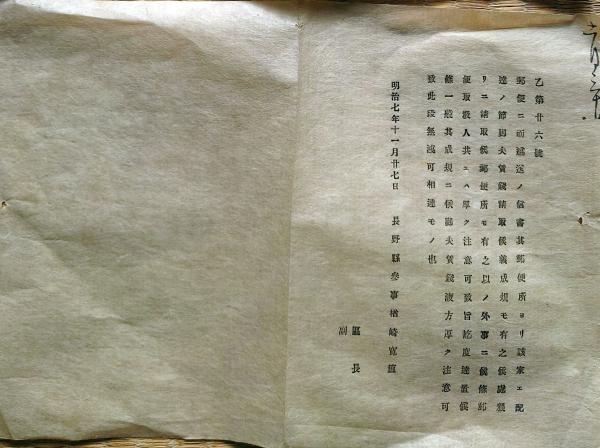 乙第廿六號
郵便ニ而逓送ノ信書其郵便所ヨリ該家エ配
達ノ節脚夫賃錢請取候義成規モ有之候處猥
リニ請取候郵便所モ有之以ノ外事ニ候條郵
便取扱人共エハ厚ク注意可致旨訖度達置候
條一般其成規ニ依脚夫賃錢渡方厚ク注意可
致此段無洩可相達モノ也
明治七年十一月廿七日 長野縣參事楢崎寛直
區長
副